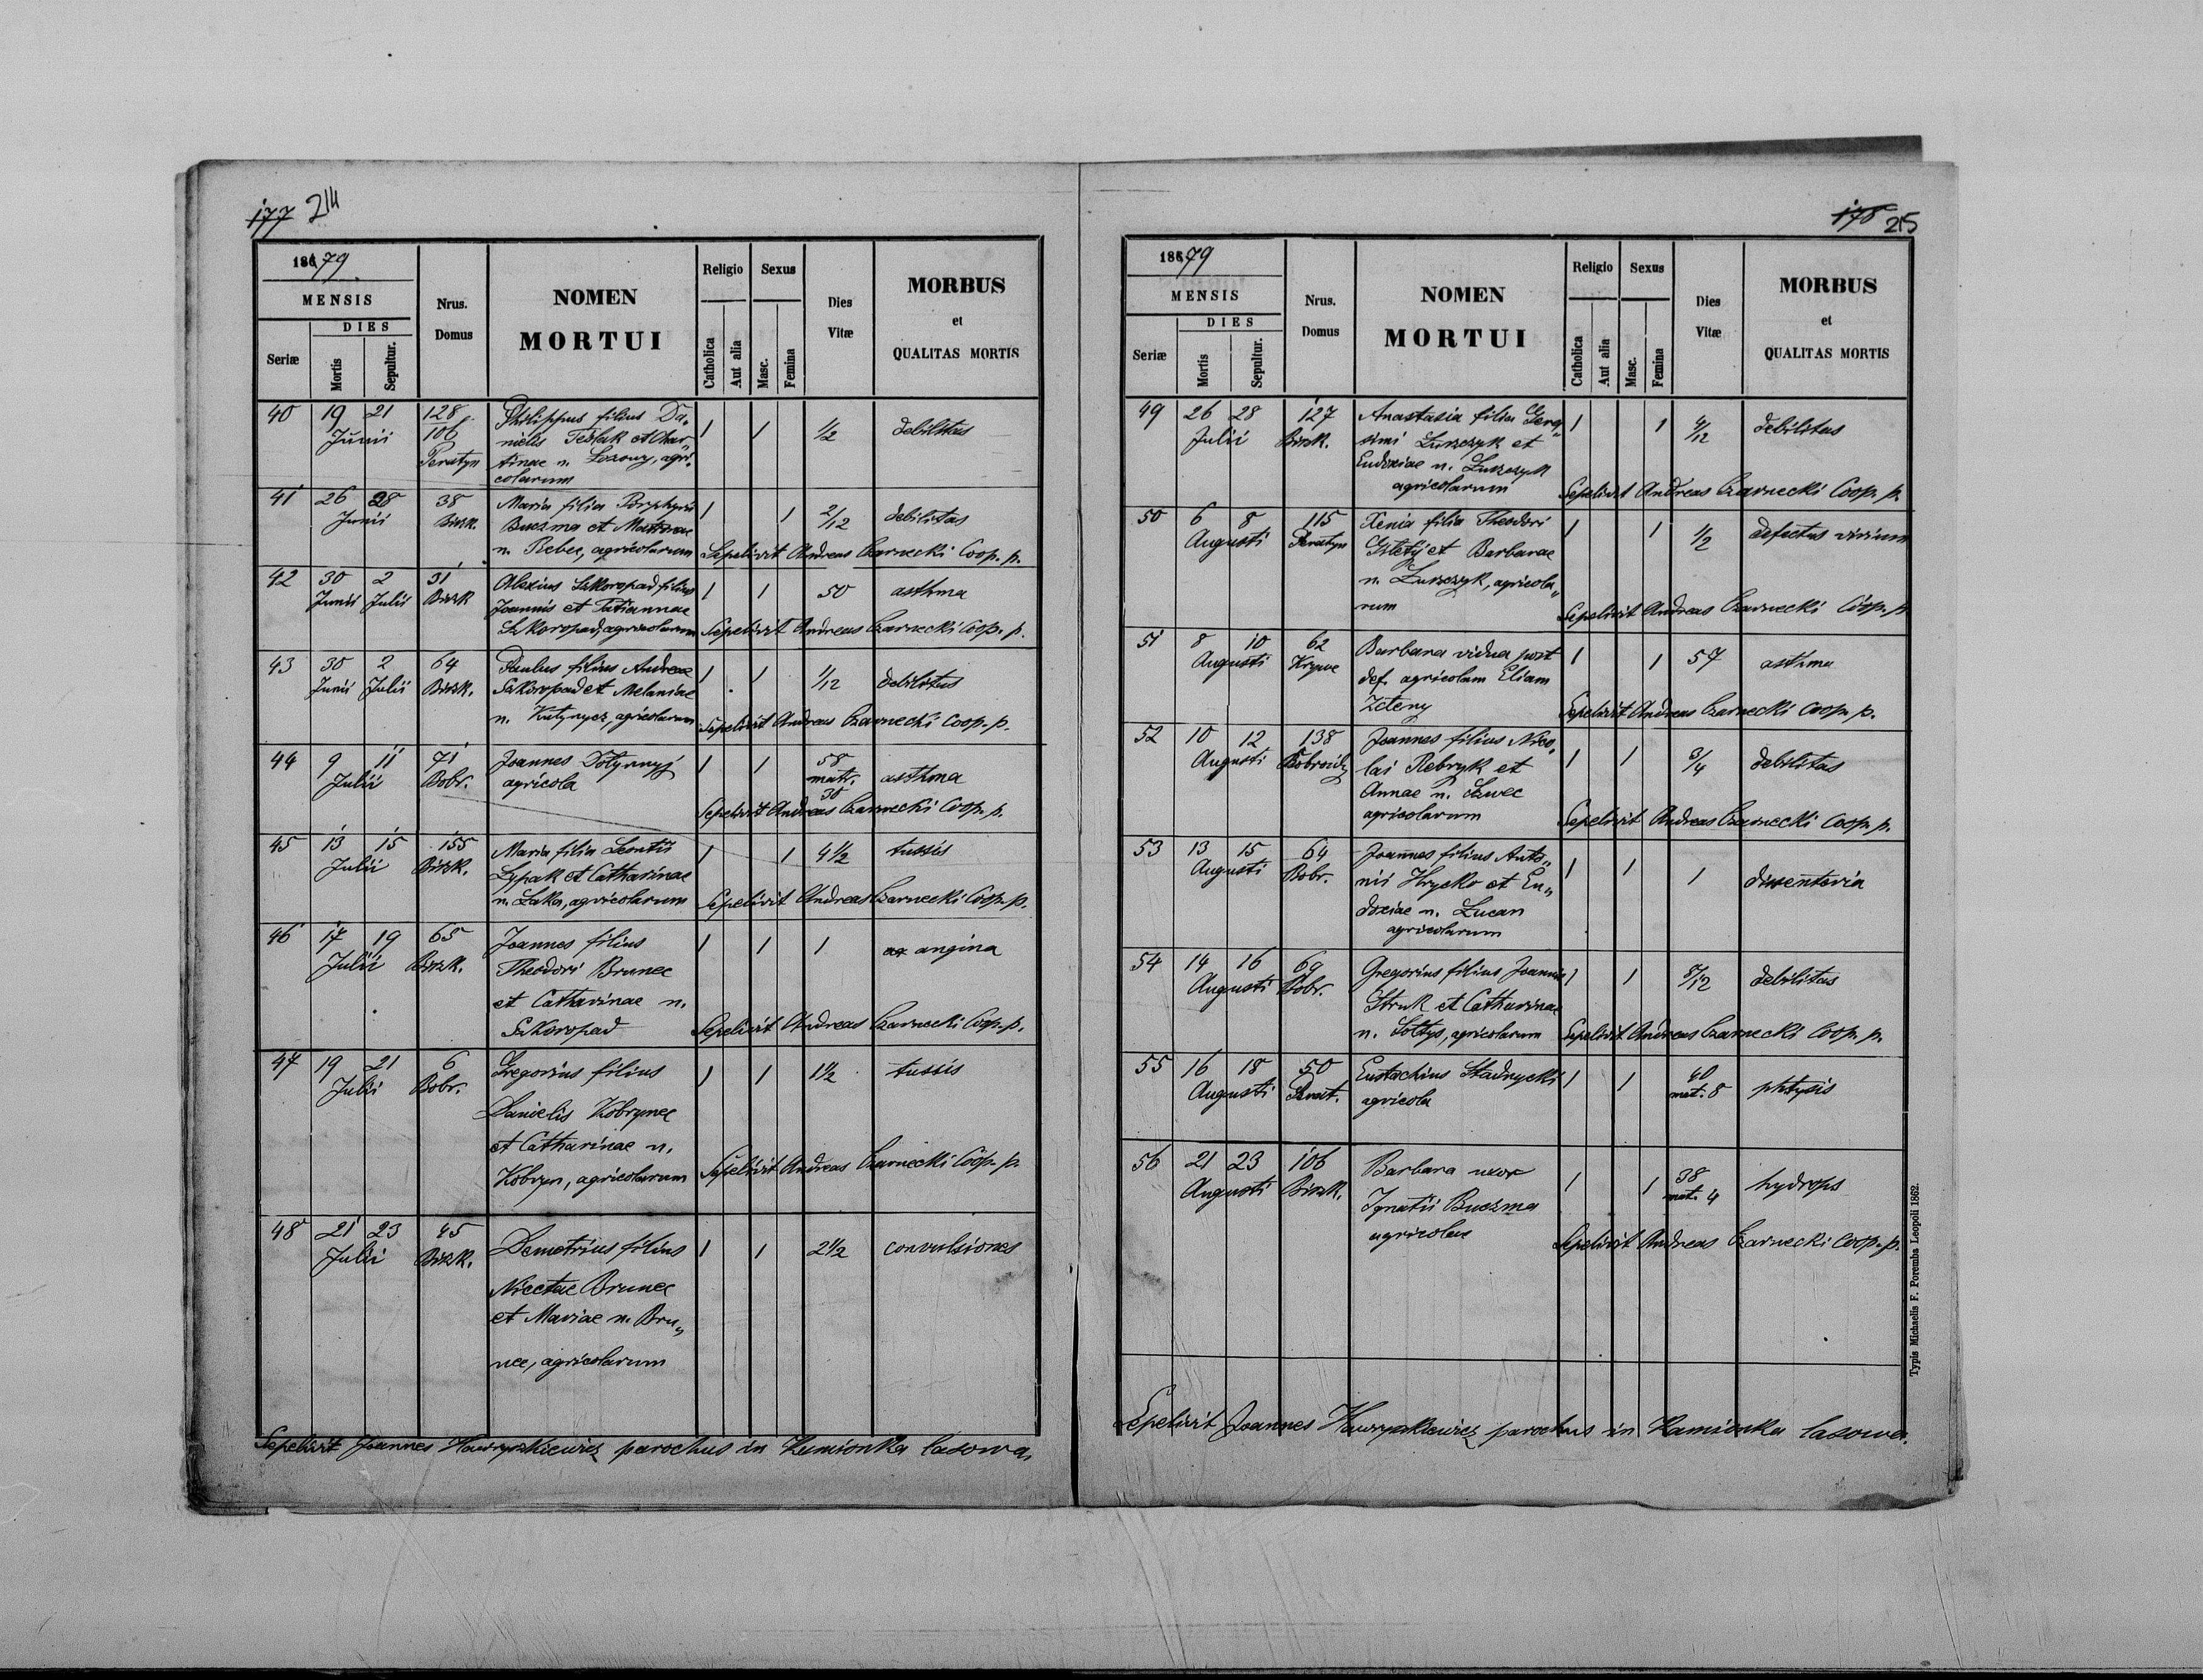 177 214
1879
MENSIS
DIES
Seriæ
Mortis
Sepultur.
Nrus. Domus
NOMEN
MORTUI
Religio
Catholica
Aut alia
Sexus
Masc.
Femina
Dies
Vitæ
MORBUS
et
QUALITAS MORTIS
40 19 21 128 Philippus filius Da„
Junii 106 nielis Teslak et Char„ 1 1 1/2 debilitas
Peratyn tinae n. agri„
colarum
41 26 28 38 Maria filia Porphyrii
Junii Bisk. Buczma et Matronae 1 1 2/12 debilitas
n. Rebec, agricolarum Sepelivit Andreas Czarnecki Coop. p.
42 30 2 31 Alexius Szkoropad filius 1 1 50 asthma
Junii Julii Bisk Joannis et Tatiannae
Szkoropad, agricolarum Sepelivit Andreas Czarnecki Coop. p.
43 30 2 64 Paulus filius Andreae
Junii Julii Bisk. Szkoropad et Melaniae 1 1 1/12 debilitas
n. Kutynycz, agricolarum Sepelivit Andreas Czarnecki Coop. p.
44 9 11 71 Joannes Dolynnyj 1 1 58
Julii Bobr. agricola matr. asthma
30
Sepelivit Andreas Czarnecki Coop. p.
45 13 15 155 Maria filia Leontii 1 1 4 1/2 tussis
Julii Bisk. Lypak et Catharinae
n. Luka, agricolarum Sepelivit Andreas Czarnecki Coop. p.
46 17 19 65 Joannes filius 1 1 1 angina
Julii Bisk. Theodori Brunec
et Catharinae n.
Szkoropad Sepelivit Andreas Czarnecki Coop. p.
47 19 21 6 Gregorius filius 1 1 1 1/2 tussis
Julii Bobr. Danielis Kobrynec
et Catharinae n.
Kobryn, agricolarum Sepelivit Andreas Czarnecki Coop. p.
48 21 23 45 Demetrius filius 1 1 2 1/2 convulsiones
Julii Bisk. Nicetae Brunec
et Mariae n. Bru„
nec, agricolarum
Sepelivit Joannes Hawryszkiewicz parochus in Kamionka lasowa
178 215
1879
MENSIS
DIES
Seriæ
Mortis
Sepultur.
Nrus. Domus
NOMEN
MORTUI
Religio
Catholica
Aut alia
Sexus
Masc.
Femina
Dies
Vitæ
MORBUS
et
QUALITAS MORTIS
49 26 28 127 Anastasia filia Gera„ 1 1 4/12 debilitas
Julii Bisk. simi Luszczyk et
Eudoxiae n. Luszczyk
agricolarum Sepelivit Andreas Czarnecki Coop. p.
50 6 8 115 Xenia filia Theodori 1 1 1/2 defectus virium
Augusti Peratyn et Barbarae
n. Luszczyk, agricola„
rum Sepelivit Andreas Czarnecki Coop. p
51 8 10 62 Barbara vidua post 1 1 57 asthma
Augusti Krywe def. agricolam Eliam
Zeleny Sepelivit Andreas Czarnecki Coop. p.
52 10 12 138 Joannes filius Nico„
Augusti lai Rebryk et 1 1 3/4 debilitas
Annae n. Szwec
agricolarum Sepelivit Andreas Czarnecki Coop. p.
53 13 15 64 Joannes filius Anto„
Augusti Bobr. nii Hrycko et Eu„ 1 1 1 dissenteria
doxiae n. Lucan
agricolarum
54 14 16 69 Gregorius filius Joannis 1 1 8/12 debilitas
Augusti Bobr. Struk et Catharinae
n. Soltys, agricolarum Sepelivit Andreas Czarnecki Coop. p.
55 16 18 50 Eustachius Stadnycki 1 1 40
Augusti Perat. agricola mat. 8 phtysis
56 21 23 106 Barbara uxor 1 1 38 hydrops
Augusti Bisk. Ignatii Buczma mat. 4
agricolae Sepelivit Andreas Czarnecki Coop. p.
Sepelivit Joannes Hawryszkiewicz parochus in Kamionka lasowa.
Typis Michaelis F. Poremba Leopoli 1862.